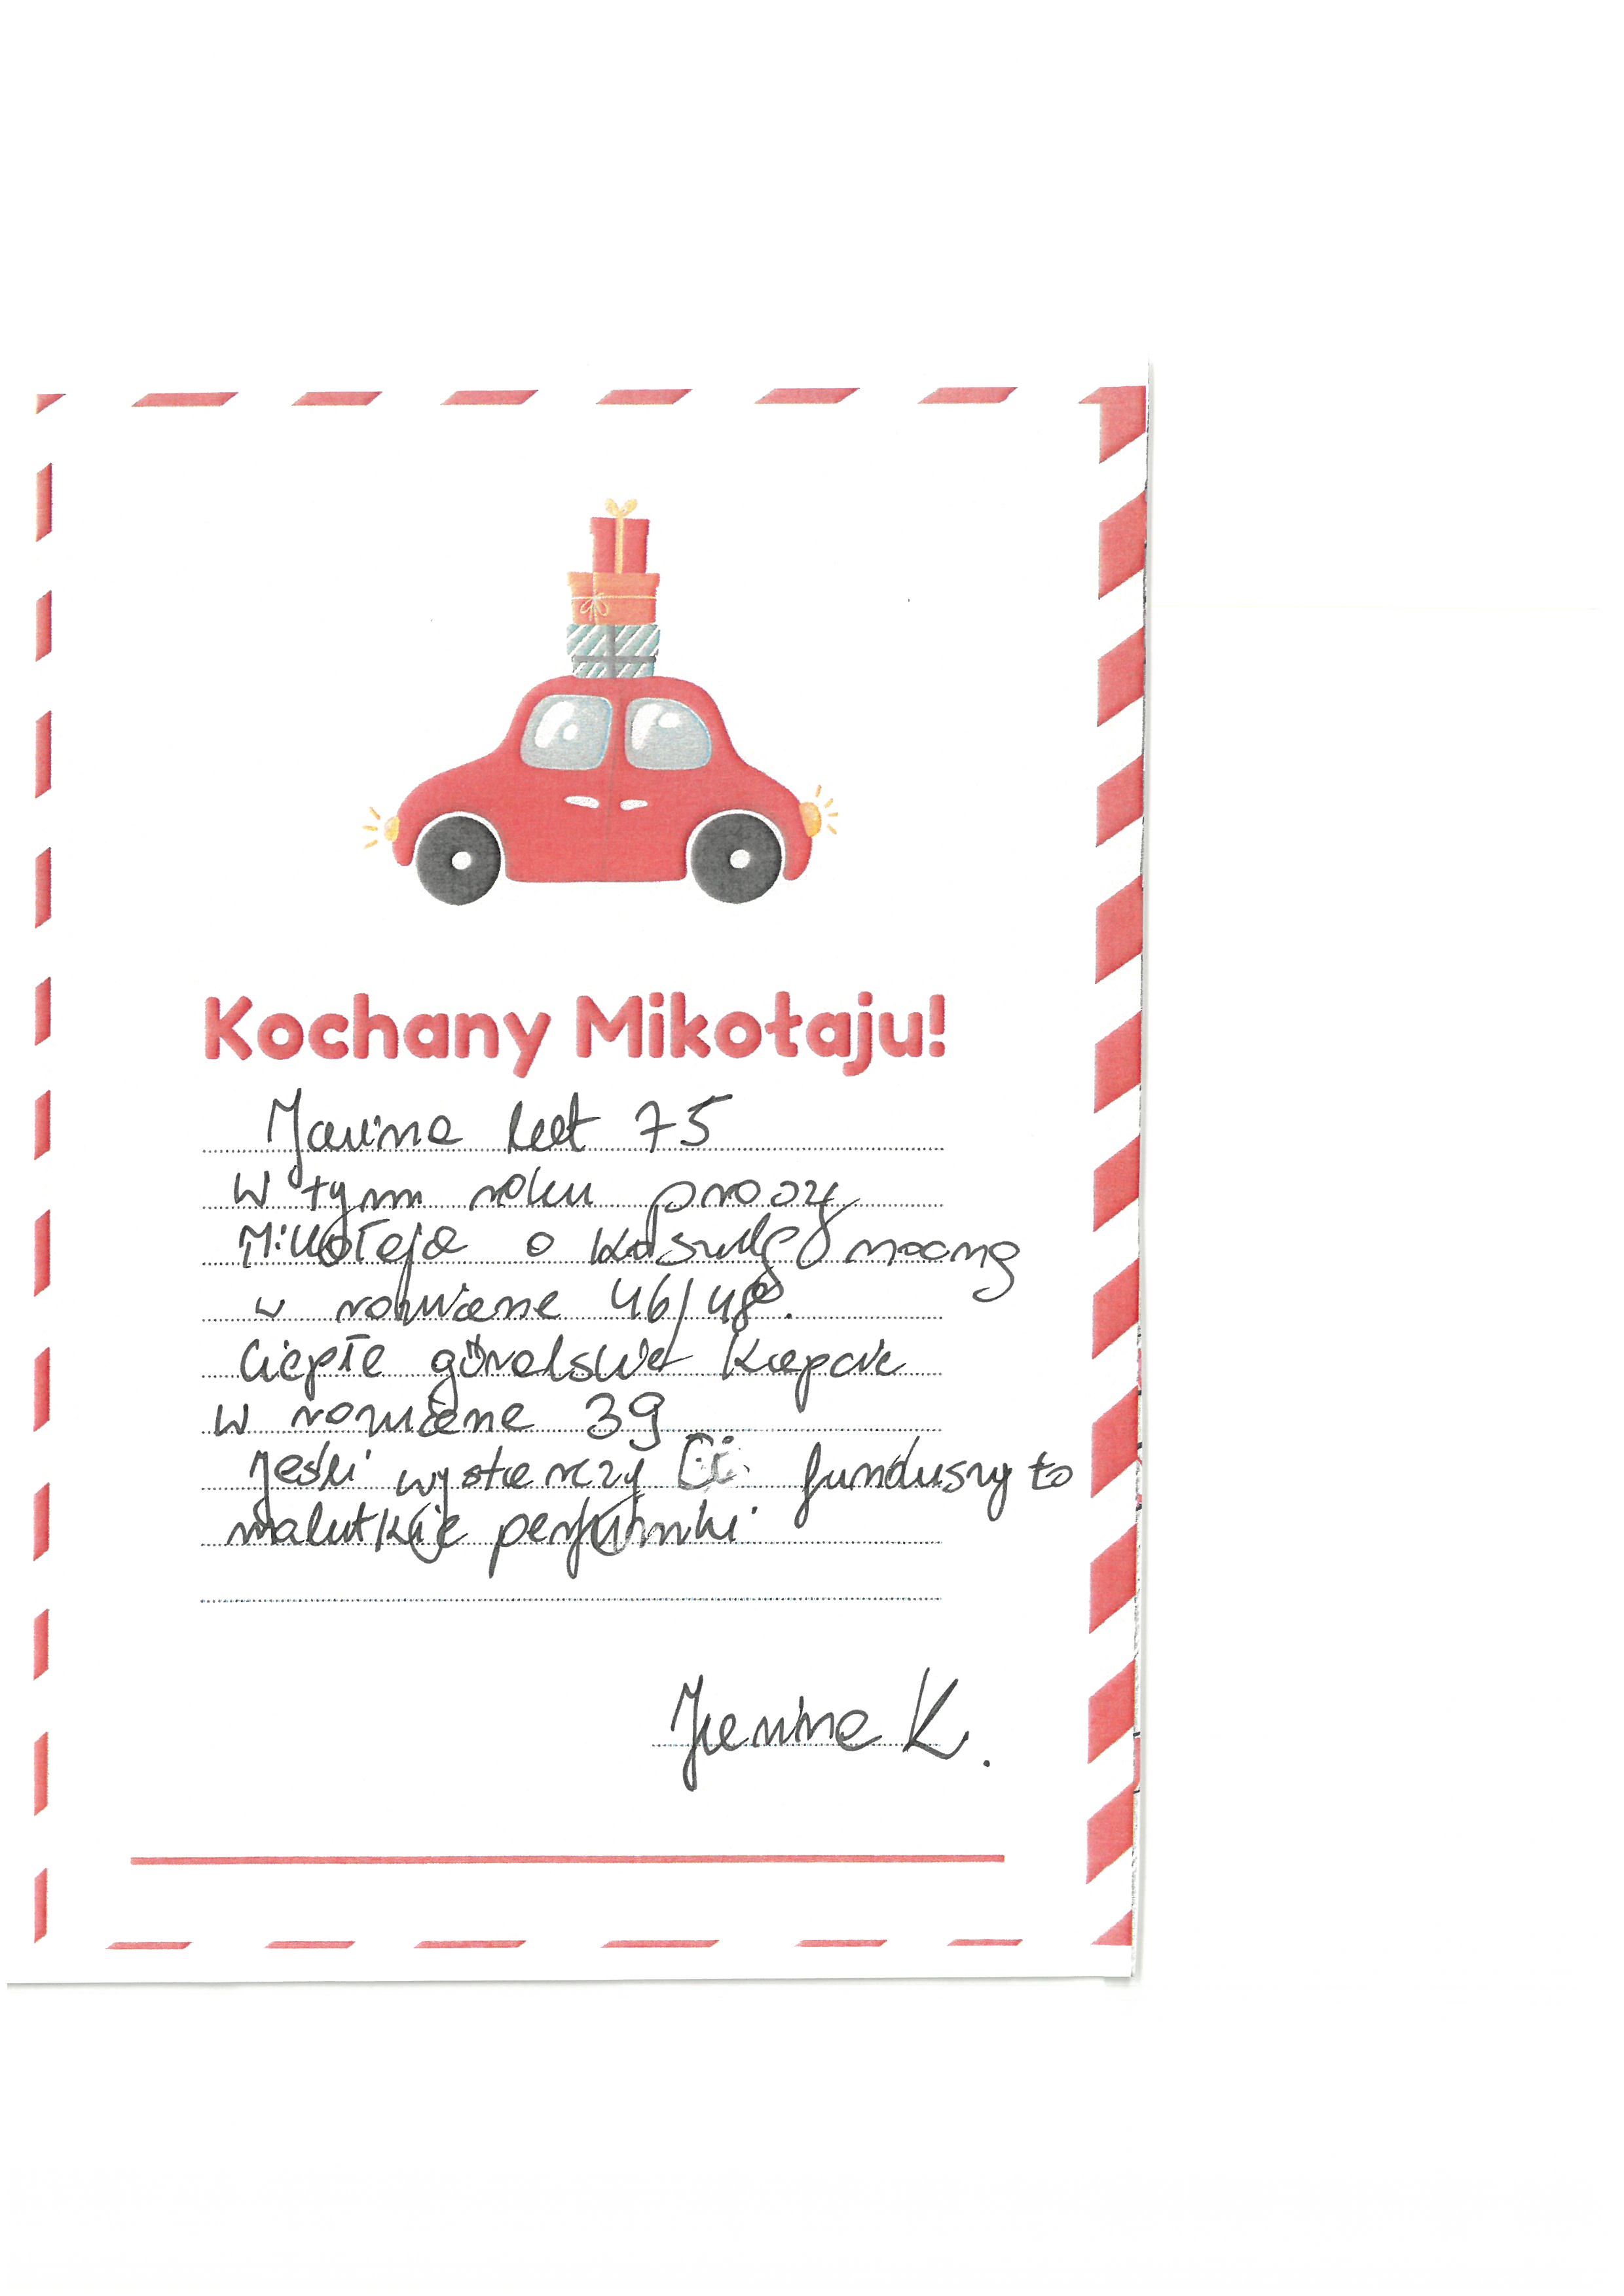 Kochany Mikołaju!
Janina lat 75
w tym roku proszę
Mikołaja o koszulę nocną
w rozmiarze 46/48.
Ciepłe góralskie kapcie
w rozmiarze 39
Jeśli wystarczy Ci funduszy to
malutkie perfumki
Janina K.